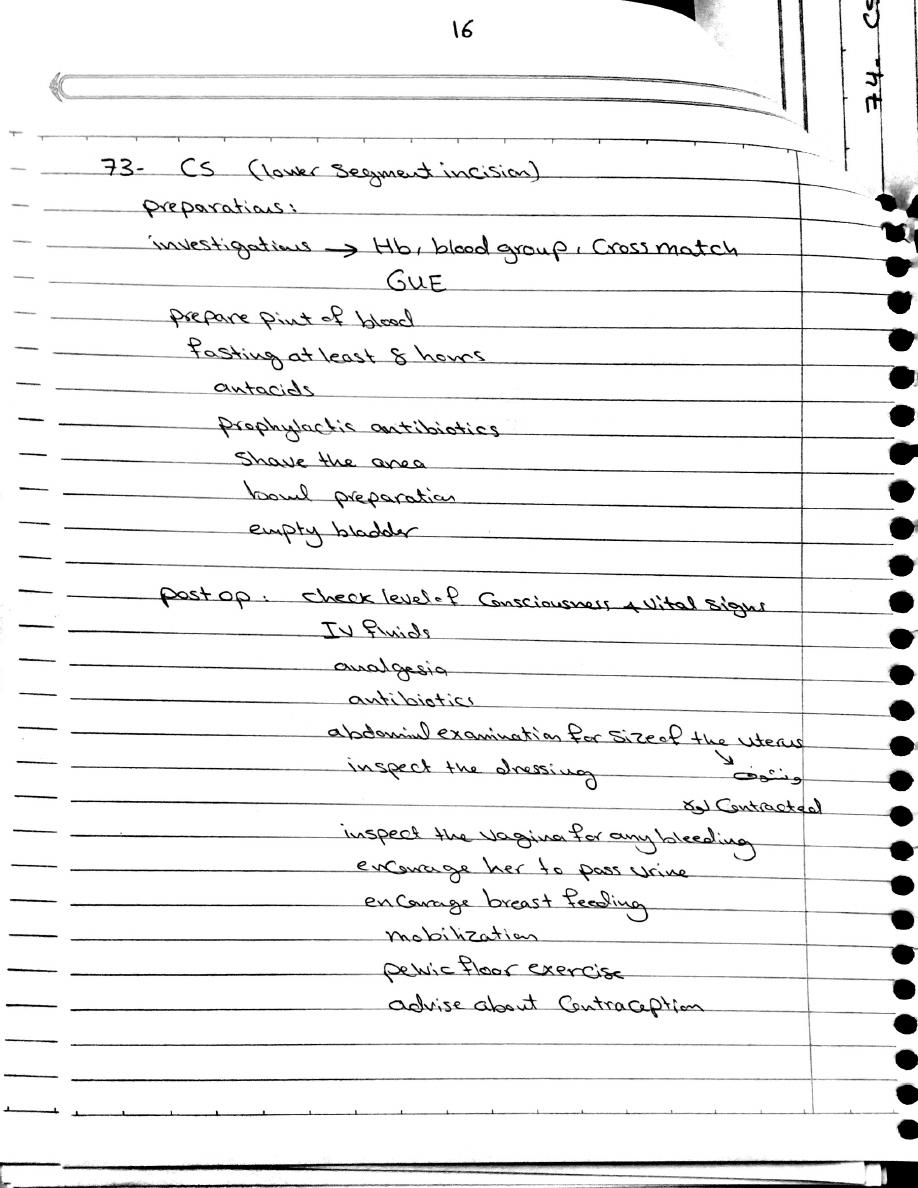 16
74- CS
73- CS (lower segment incision)
preparations:
investigations → Hb, blood group, Cross match
GUE
prepare pint of blood
fasting at least 8 hours
antacids
prophylactic antibiotics
shave the area
bowl preparation
empty bladder
post op: check level of Consciousness + vital signs
IV fluids
analgesia
antibiotics
abdominal examination for size of the uterus
inspect the dressing
Contracted
inspect the vagina for any bleeding
encourage her to pass urine
encourage breast feeding
mobilization
pelvic floor exercise
advise about Contraception